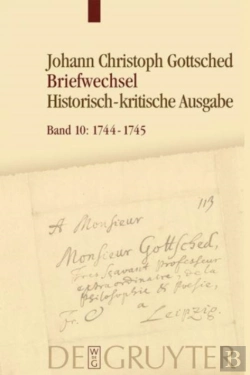 Johann Christoph Gottsched
Briefwechsel
Historisch-kritische Ausgabe
Band 10: 1744-1745
113
A Monsieur
Monsieur Gottsched,
Professeur
extraordinaire, de la
Philosophie & Poesie,
Fr. a Leipzig.
DE GRUYTER
B